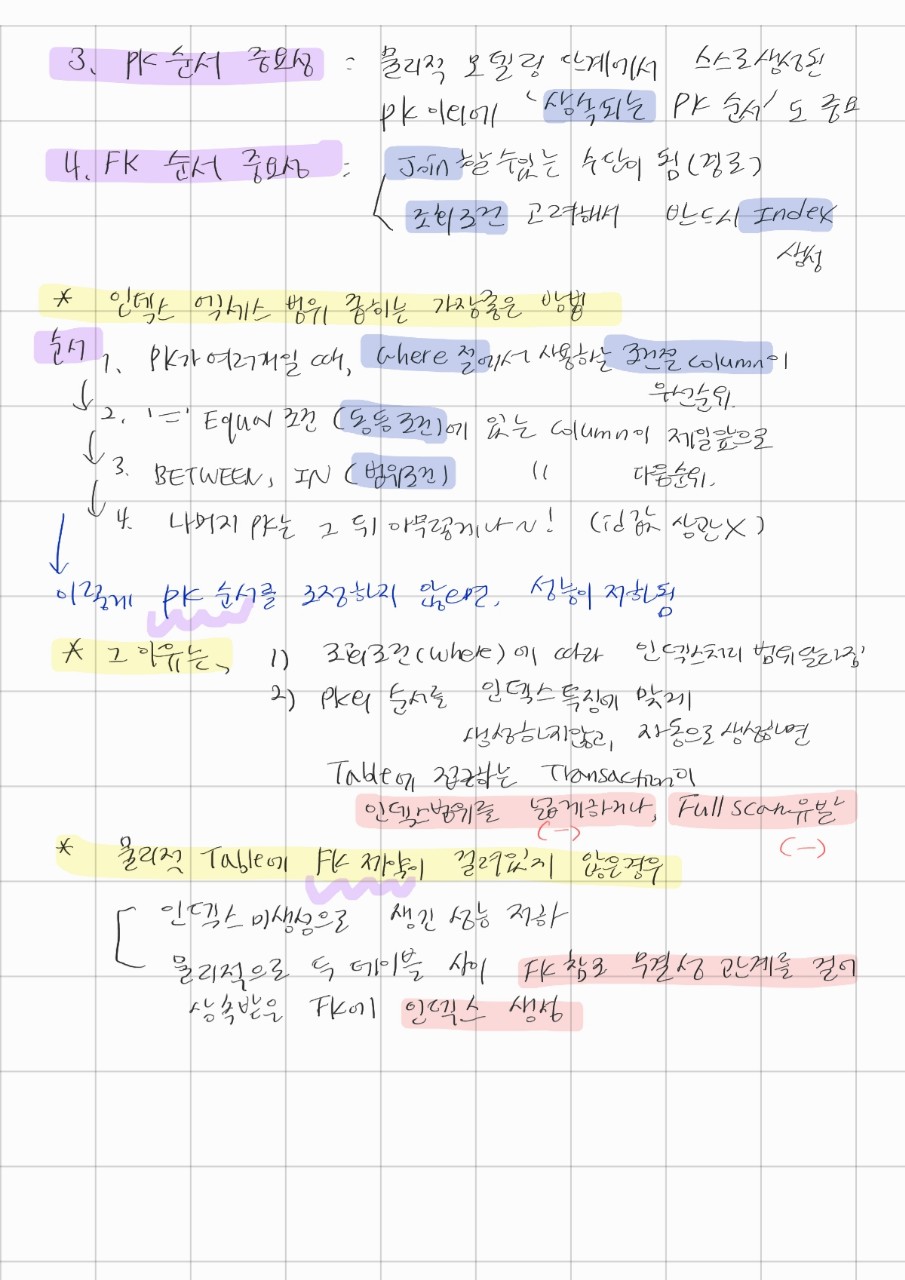 3. PK 순서 중요성 : 물리적 모델링 단계에서 스스로생성된
PK 이외에 '상속되는 PK 순서'도 중요
4. FK 순서 중요성 : Join할수있는 수단이 됨(경로)
조회조건 고려해서 반드시 Index
생성
* 인덱스 엑세스 범위 좁히는 가장좋은 방법
순서 1. PK가 여러개일 때, Where 절에서 사용하는 조건절 column이
우선순위.
2. '=' Equal 조건 (동등조건)에 있는 column이 제일앞으로
3. BETWEEN, IN (범위조건) 〃 다음순위.
4. 나머지 PK는 그 뒤 아무렇게나~! (id값 상관X)
이렇게 PK 순서를 조정하지 않으면, 성능이 저하됨
* 그 이유는, 1) 조회조건(Where)에 따라 인덱스처리 범위달라짐
2) PK의 순서를 인덱스특징에 맞게
생성하지않고, 자동으로 생성하면
Table에 접근하는 Transaction이
인덱스범위를 넓게하거나, Full scan유발
(-) (-)
* 물리적 Table에 FK 제약이 걸려있지 않은경우
인덱스 미생성으로 생긴 성능 저하
물리적으로 두 테이블 사이 FK 참조 무결성 관계를 걸어
상속받은 FK에 인덱스 생성